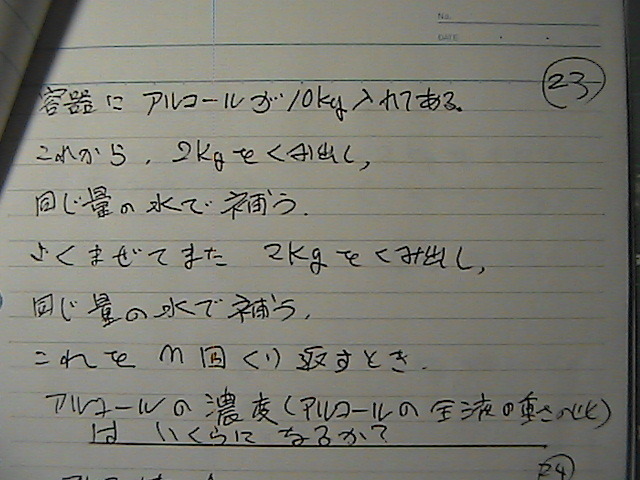 No.
DATE
23
容器に アルコールが10kg入れてある。
これから、2kgをくみ出し,
同じ量の水で補う.
よくまぜてまた 2kgをくみ出し,
同じ量の水で補う.
これを n回くり返すとき.
アルコールの濃度(アルコールの全液の重さの比)
は いくらになるか?
24